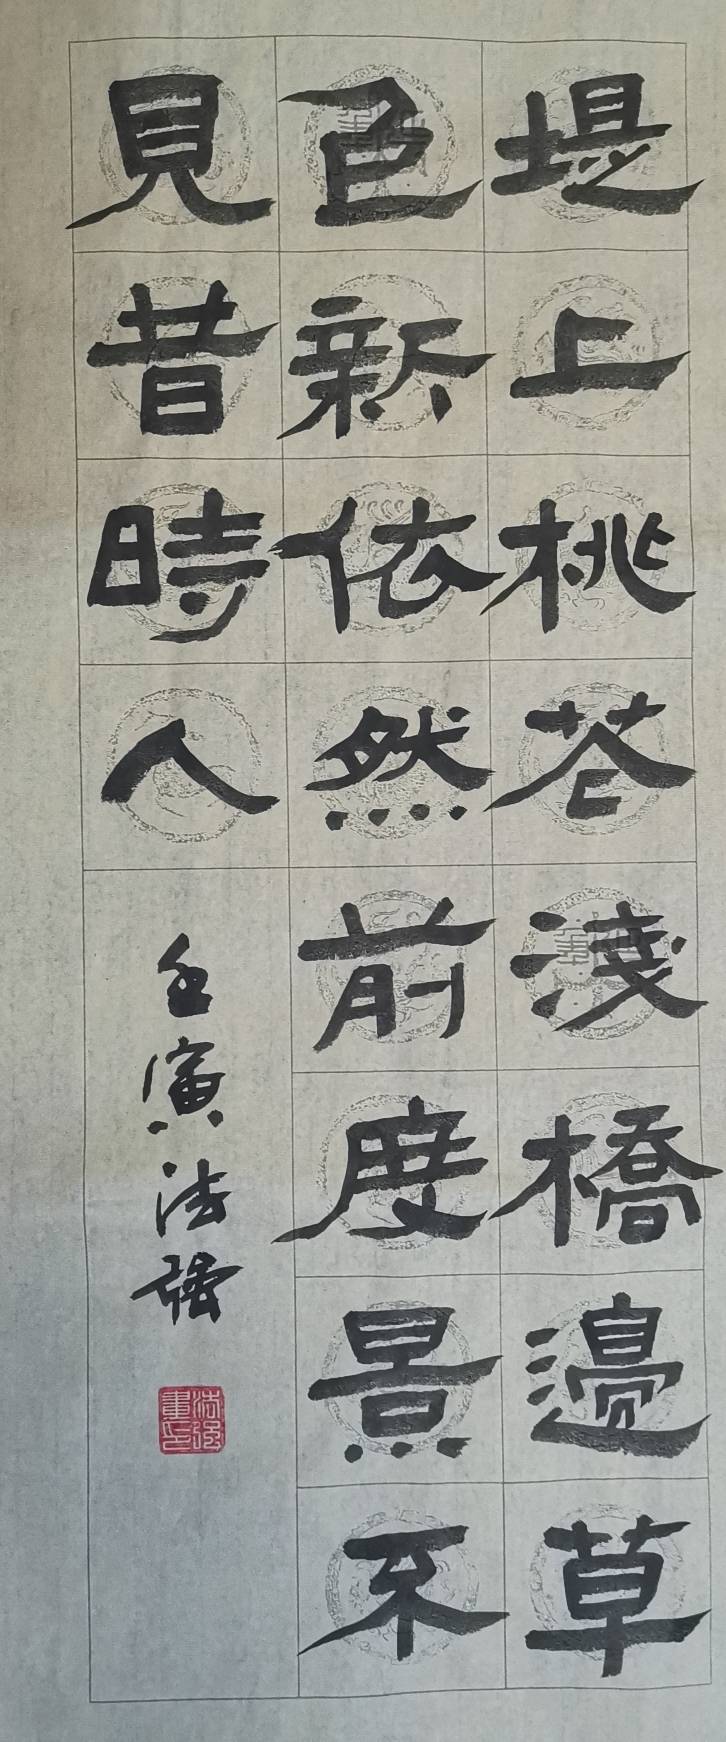 堤上桃花淺橋邊草
色新依然前度景不
見昔時人
壬寅法強
法強書印